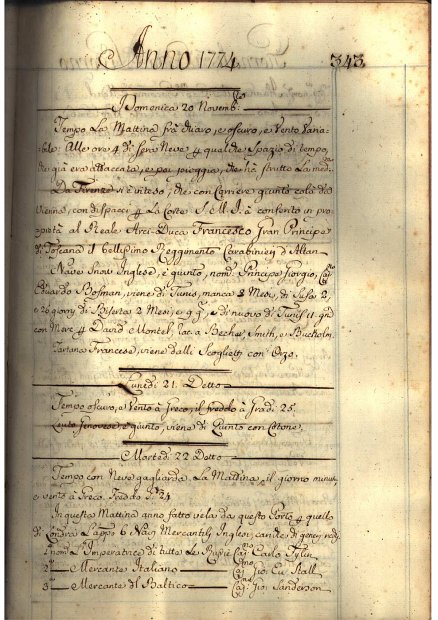 Anno 1774. 343
Domenica 20 Novemb.re
Tempo La Mattina frà chiaro, e oscuro, e Vento Varia
bile: Alle ore 4 di sera Neve p qualche Spazio di tempo,
che già era attaccata, e poi pioggia, che hà strutto La med.
Da Firenze si è inteso, che con Corriere giunto colà da
Vienna, con dispacci p La Corte S.M.I. à conferito in pro
prietà al Reale Arci-Duca Francesco Gran Principe
di Toscana il bellissimo Reggimento Carabinieri d'Altan
Nave Inglese, è giunto, nom. Principe Giorgio, Cap.no
Eduardo Bosman, viene di Tunis, manca 3 Mesi, di Susa 2,
e 20 giorni di Biserta 2 Mesi, e 9 g, e di nuovo di Tunis 11 gni
con Merc. p David Montel, Becher, Smith, e
Tartana Francese, viene dalli Scoglietti con Orzo.
Lunedi 21. Detto
Tempo oscuro, e Vento à Greco, il freddo à Gradi 25.
Leuto Genovese è giunto, viene di Quinto con Cotone.
Martedi 22 Detto
Tempo con Neve gagliarda La Mattina, e il giorno minuta
e vento à Greco. Freddo G.di 24
In questa Mattina anno fatto vela da questo Porto p quello
di Londra L'app. 6 Navi Mercantili Inglesi cariche di generi
1 nom. L'Imperatrice di tutte Le Russie Cap.no Carlo
2.a Mercante Italiano Cap.no Gio: Stall
3.a Mercante del Baltico Cap.no Gio: Sanderson